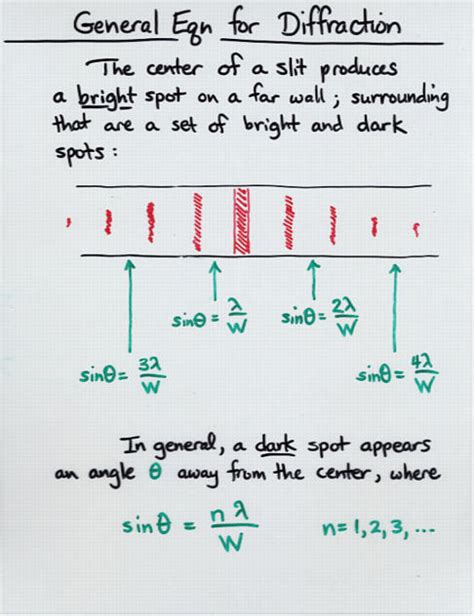 General Eqn for Diffraction
The center of a slit produces
a bright spot on a far wall; surrounding
that are a set of bright and dark
spots:
sinθ = λ/W
sinθ = 2λ/W
sinθ = 3λ/W
sinθ = 4λ/W
In general, a dark spot appears
an angle θ away from the center, where
sinθ = nλ/W n=1,2,3,...